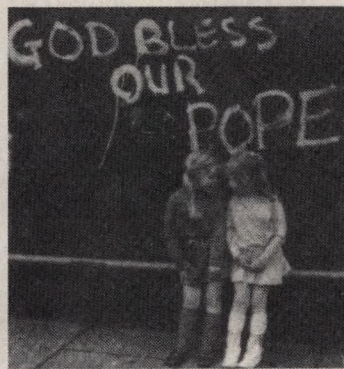 GOD BLESS
OUR
POPE